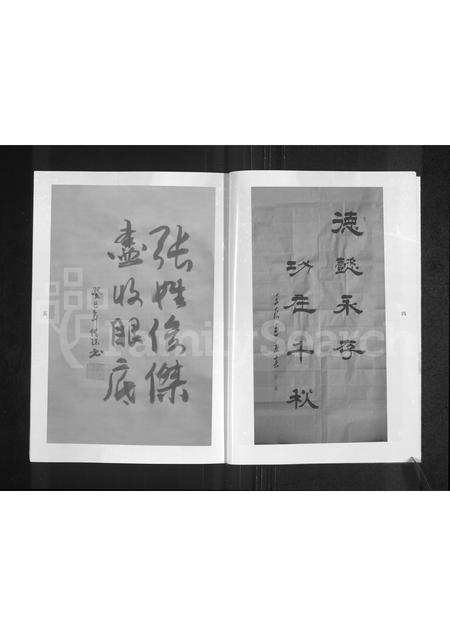 德懿永存
功在千秋
四
张姓俊傑
盡收眼底
癸巳年
五
FamilySearch